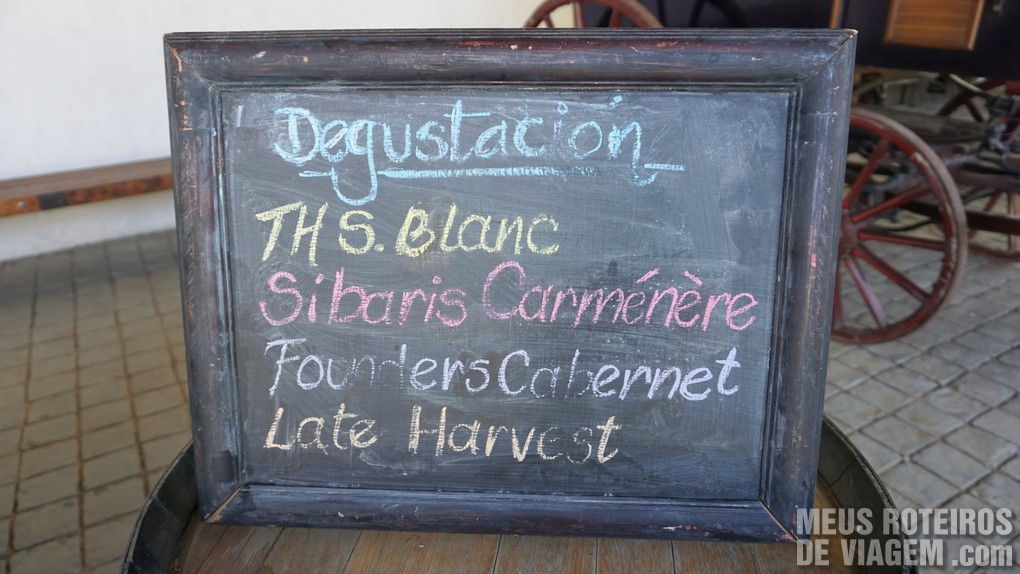 Degustación
TH S. Blanc
Sibaris Carménère
Founders Cabernet
Late Harvest
MEUS ROTEIROS
DE VIAGEM .com